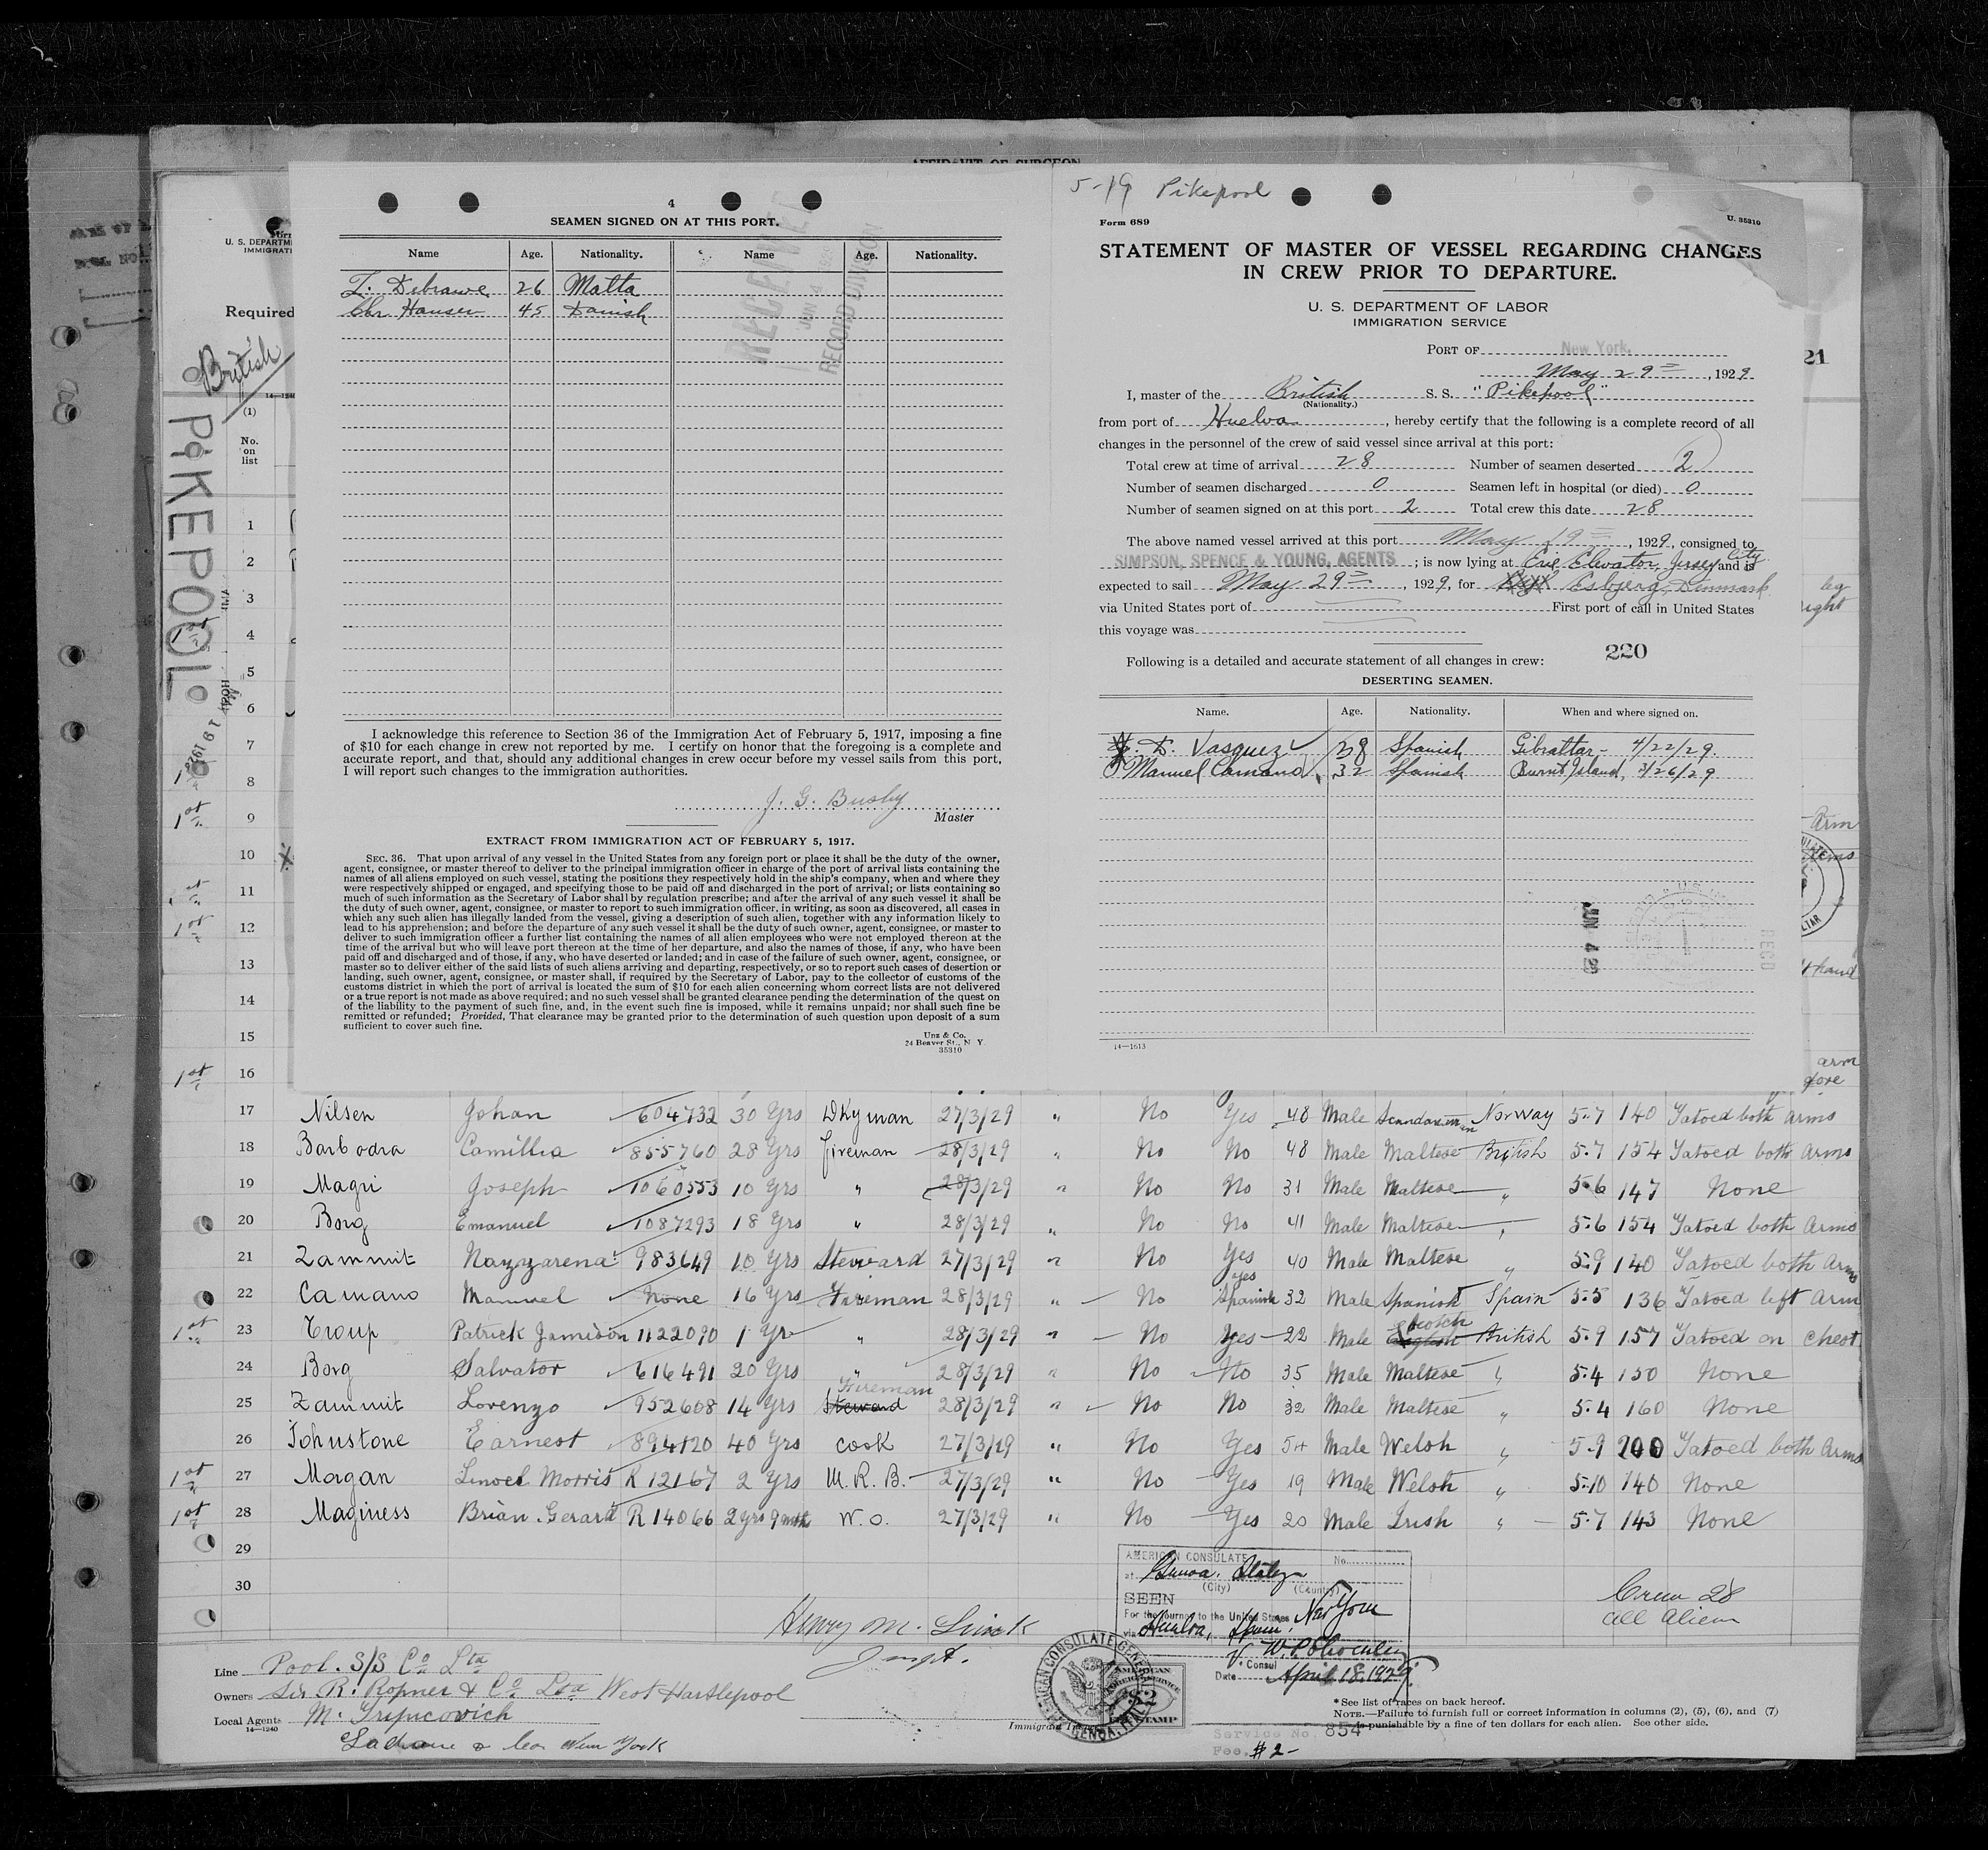 AFFIDAVIT OF SURGEON
4
SEAMEN SIGNED ON AT THIS PORT.
Name Age. Nationality. Name Age. Nationality.
Z. Debrawe 26 Malta
Chr Hansen 45 Danish
RECEIVED
JUN 4
RECORD DIVISION
I acknowledge this reference to Section 36 of the Immigration Act of February 5, 1917, imposing a fine
of $10 for each change in crew not reported by me. I certify on honor that the foregoing is a complete and
accurate report, and that, should any additional changes in crew occur before my vessel sails from this port,
I will report such changes to the immigration authorities.
J. G. Busby
Master
EXTRACT FROM IMMIGRATION ACT OF FEBRUARY 5, 1917.
SEC. 36. That upon arrival of any vessel in the United States from any foreign port or place it shall be the duty of the owner,
agent, consignee, or master thereof to deliver to the principal immigration officer in charge of the port of arrival lists containing the
names of all aliens employed on such vessel, stating the positions they respectively hold in the ship's company, when and where they
were respectively shipped or engaged, and specifying those to be paid off and discharged in the port of arrival; or lists containing so
much of such information as the Secretary of Labor shall by regulation prescribe; and after the arrival of any such vessel it shall be
the duty of such owner, agent, consignee, or master to report to such immigration officer, in writing, as soon as discovered, all cases in
which any such alien has illegally landed from the vessel, giving a description of such alien, together with any information likely to
lead to his apprehension; and before the departure of any such vessel it shall be the duty of such owner, agent, consignee, or master to
deliver to such immigration officer a further list containing the names of all alien employees who were not employed thereon at the
time of the arrival but who will leave port thereon at the time of her departure, and also the names of those, if any, who have been
paid off and discharged and of those, if any, who have deserted or landed; and in case of the failure of such owner, agent, consignee, or
master so to deliver either of the said lists of such aliens arriving and departing, respectively, or so to report such cases of desertion or
landing, such owner, agent, consignee, or master shall, if required by the Secretary of Labor, pay to the collector of customs of the
customs district in which the port of arrival is located the sum of $10 for each alien concerning whom correct lists are not delivered
or a true report is not made as above required; and no such vessel shall be granted clearance pending the determination of the quest on
of the liability to the payment of such fine, and, in the event such fine is imposed, while it remains unpaid; nor shall such fine be
remitted or refunded; Provided, That clearance may be granted prior to the determination of such question upon deposit of a sum
sufficient to cover such fine.
Unz & Co.
24 Beaver St., N. Y.
35310
5-19 Pikepool
Form 689
U. 35310
STATEMENT OF MASTER OF VESSEL REGARDING CHANGES
IN CREW PRIOR TO DEPARTURE.
U. S. DEPARTMENT OF LABOR
IMMIGRATION SERVICE
PORT OF New York.
May 29th, 1929
I, master of the British S. S. "Pikepool"
(Nationality.)
from port of Huelva, hereby certify that the following is a complete record of all
changes in the personnel of the crew of said vessel since arrival at this port:
Total crew at time of arrival 28 Number of seamen deserted 2
Number of seamen discharged 0 Seamen left in hospital (or died) 0
Number of seamen signed on at this port 2 Total crew this date 28
The above named vessel arrived at this port May 19th, 1929, consigned to
SIMPSON, SPENCE & YOUNG, AGENTS; is now lying at Erie Elevator, Jersey City and is
expected to sail May 29th, 1929, for Esbjerg, Denmark
via United States port of First port of call in United States
this voyage was
220
Following is a detailed and accurate statement of all changes in crew:
DESERTING SEAMEN.
Name. Age. Nationality. When and where signed on.
D. Vasquez 38 Spanish Gibraltar - 4/22/29.
Manuel Camano 32 Spanish Burnt Island, 3/26/29
JUN 4 29
RECD
14—1613
U. S. DEPARTM
IMMIGRATI
Required
British
14—1240
(1)
No.
on
list
PIKEPOOL
21
leg
ight
Arm
Arms
hand
arm
fore
1
2
3
1st 4
5
6
7
1st 8
1st 9
10
1st 11
1st 12
13
14
15
1st 16
17 Nilsen Johan 604732 30 Yrs Dkyman 27/3/29 " No Yes 48 Male Scandanavian Norway 5-7 140 Tatoed both arms
18 Barbadra Camillia 855760 28 Yrs fireman 28/3/29 " No No 48 Male Maltese British 5-7 154 Tatoed both Arms
19 Magri Joseph 1060553 10 Yrs " 28/3/29 " No No 31 Male Maltese " 5-6 147 None
20 Borg Emanuel 1087293 18 Yrs " 28/3/29 " No No 41 Male Maltese " 5-6 154 Tatoed both Arms
21 Zammit Nazzarena 983649 10 Yrs Steward 27/3/29 " No Yes 40 Male Maltese " 5-9 140 Tatoed both Arms
22 Camano Manuel None 16 Yrs Fireman 28/3/29 " No yes Spanish 32 Male Spanish Spain 5-5 136 Tatoed left Arm
1st 23 Troup Patrick Jamieson 1122090 1 Yr " 28/3/29 " No Yes 22 Male English Scotch British 5-9 157 Tatoed on Chest
24 Borg Salvator 616491 20 Yrs " 28/3/29 " No No 35 Male Maltese " 5-4 150 None
25 Zammit Lorenzo 952608 14 Yrs Steward Fireman 28/3/29 " No No 32 Male Maltese " 5-4 160 None
26 Johnstone Earnest 894120 40 Yrs Cook 27/3/29 " No Yes 54 Male Welsh " 5-9 200 Tatoed both Arms
1st 27 Morgan Linoel Morris R 12167 2 Yrs M. R. B. 27/3/29 " No Yes 19 Male Welsh " 5-10 140 None
1st 28 Maginess Brian Gerard R 14066 2 yrs 9 mths W. O. 27/3/29 " No Yes 20 Male Irish " 5-7 143 None
29
30
AMERICAN CONSULATE No.
at Genoa, Italy
(City) (Country)
SEEN
For the journey to the United States New York
via Huelva, Spain.
V. Consul
Date April 18, 1929
Crew 28
all Aliens
Henry M.
Inspt.
AMERICAN CONSULATE GENERAL
GENOA, ITALY
AMERICAN
FOREIGN SERVICE
$2
FEE STAMP
Line Pool. S/S Co Ltd
Owners Sir R. Ropner & Co. Ltd West Hartlepool
Local Agents M. Tripicovich
14—1240
& Co. New York
Immigrant In
Service No. 854
Fee. $2-
*See list of races on back hereof.
NOTE.—Failure to furnish full or correct information in columns (2), (5), (6), and (7)
is punishable by a fine of ten dollars for each alien. See other side.